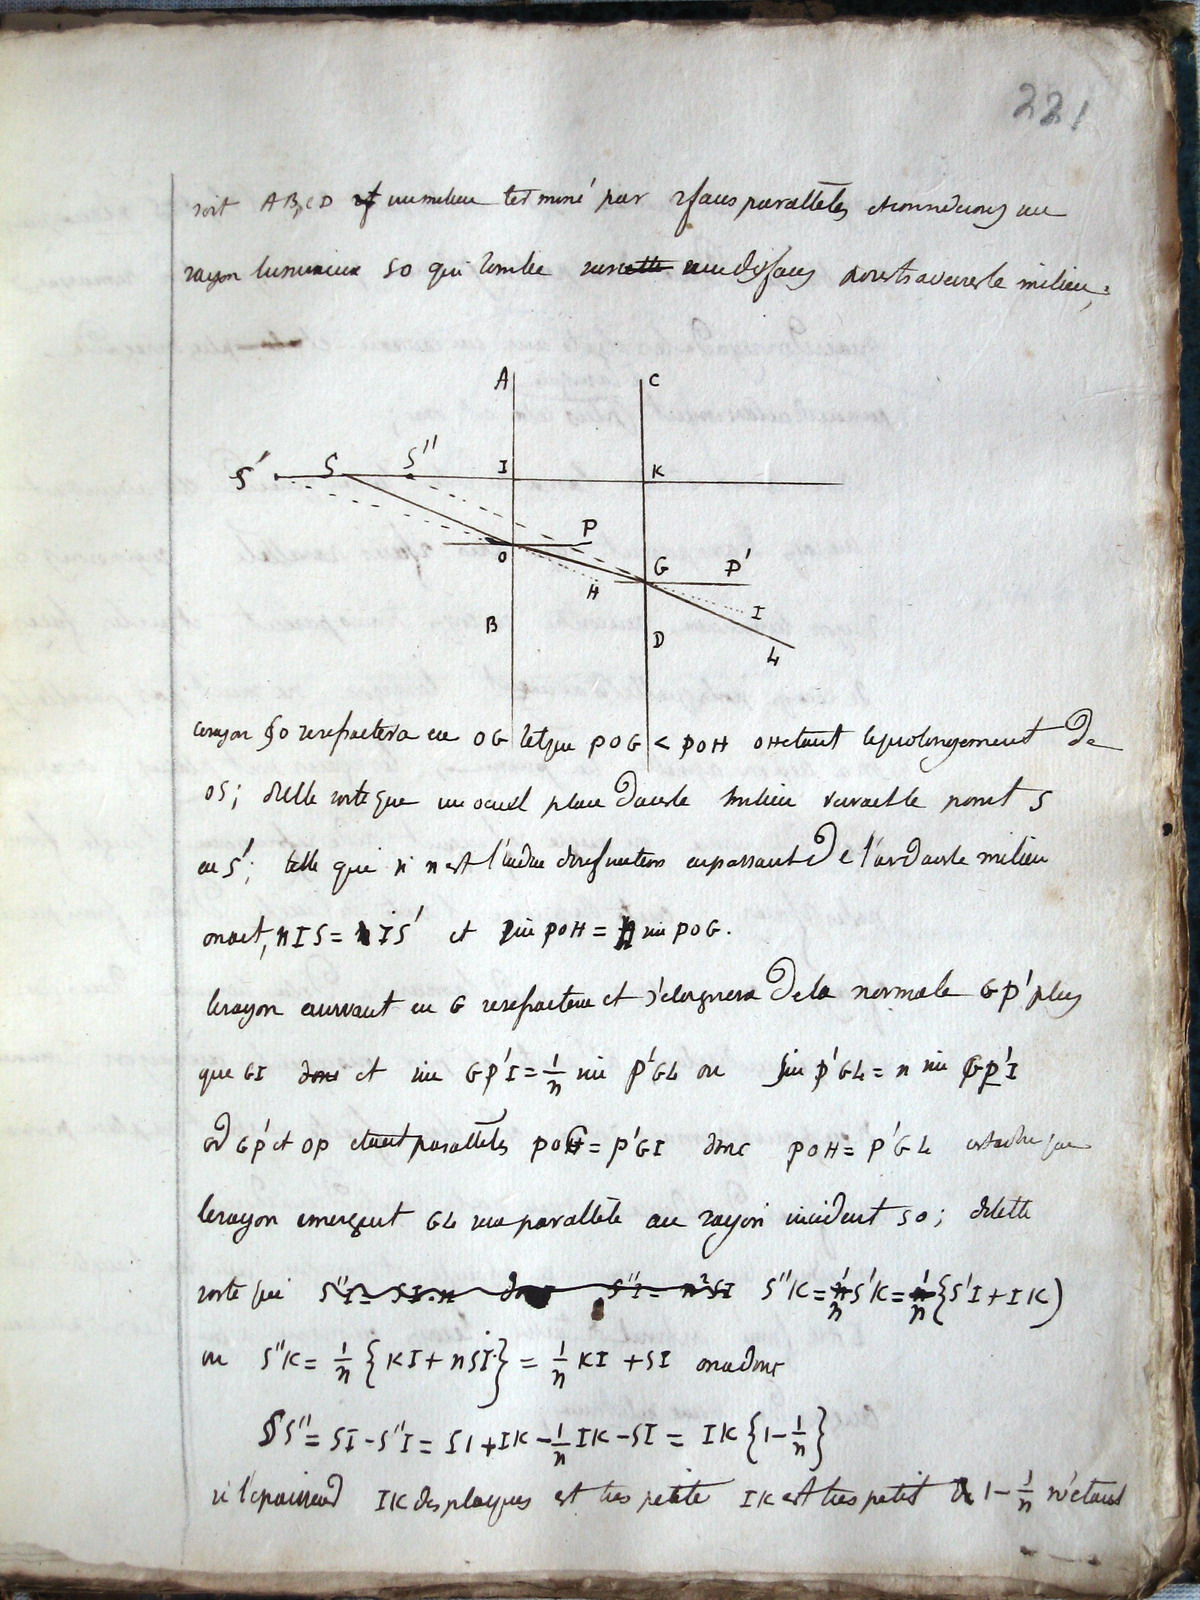 221
soit ABCD un milieu terminé par 2 faces paralleles et considerons un
rayon lumineux SO qui tombe sur une des faces pour traverser le milieu;
A C
S' S S'' I K
P
O G P'
H I
B D L
le rayon SO se refractera en OG tel que POG < POH OH etant le prolongement de
OS; de telle sorte que un oeuil placé dans le milieu verrait le point S
en S'; telle que si n est l'indice de refraction en passant de l'air dans le milieu
on ait, n IS = IS' et sin POH = n sin POG.
le rayon arrivant en G se refractera et s'eloignera de la normale GP' plus
que GI donc et sin GP'I = 1/n sin P'GL ou sin P'GL = n sin GP'I
or GP' et OP etant paralleles POG = P'GI donc POH = P'GL est a dire que
le rayon emergent GL sera parallele au rayon incident SO; de telle
sorte que S''I = SI.n donc S''I = n²SI S''K = 1/n S'K = 1/n {S'I + IK)
ou S''K = 1/n {KI + nSI} = 1/n KI + SI on a donc
SS'' = SI - S''I = SI + IK - 1/n IK - SI = IK {1 - 1/n}
si l'epaisseur IK des plaques est tres petite IK est tres petit 1 - 1/n n'etant